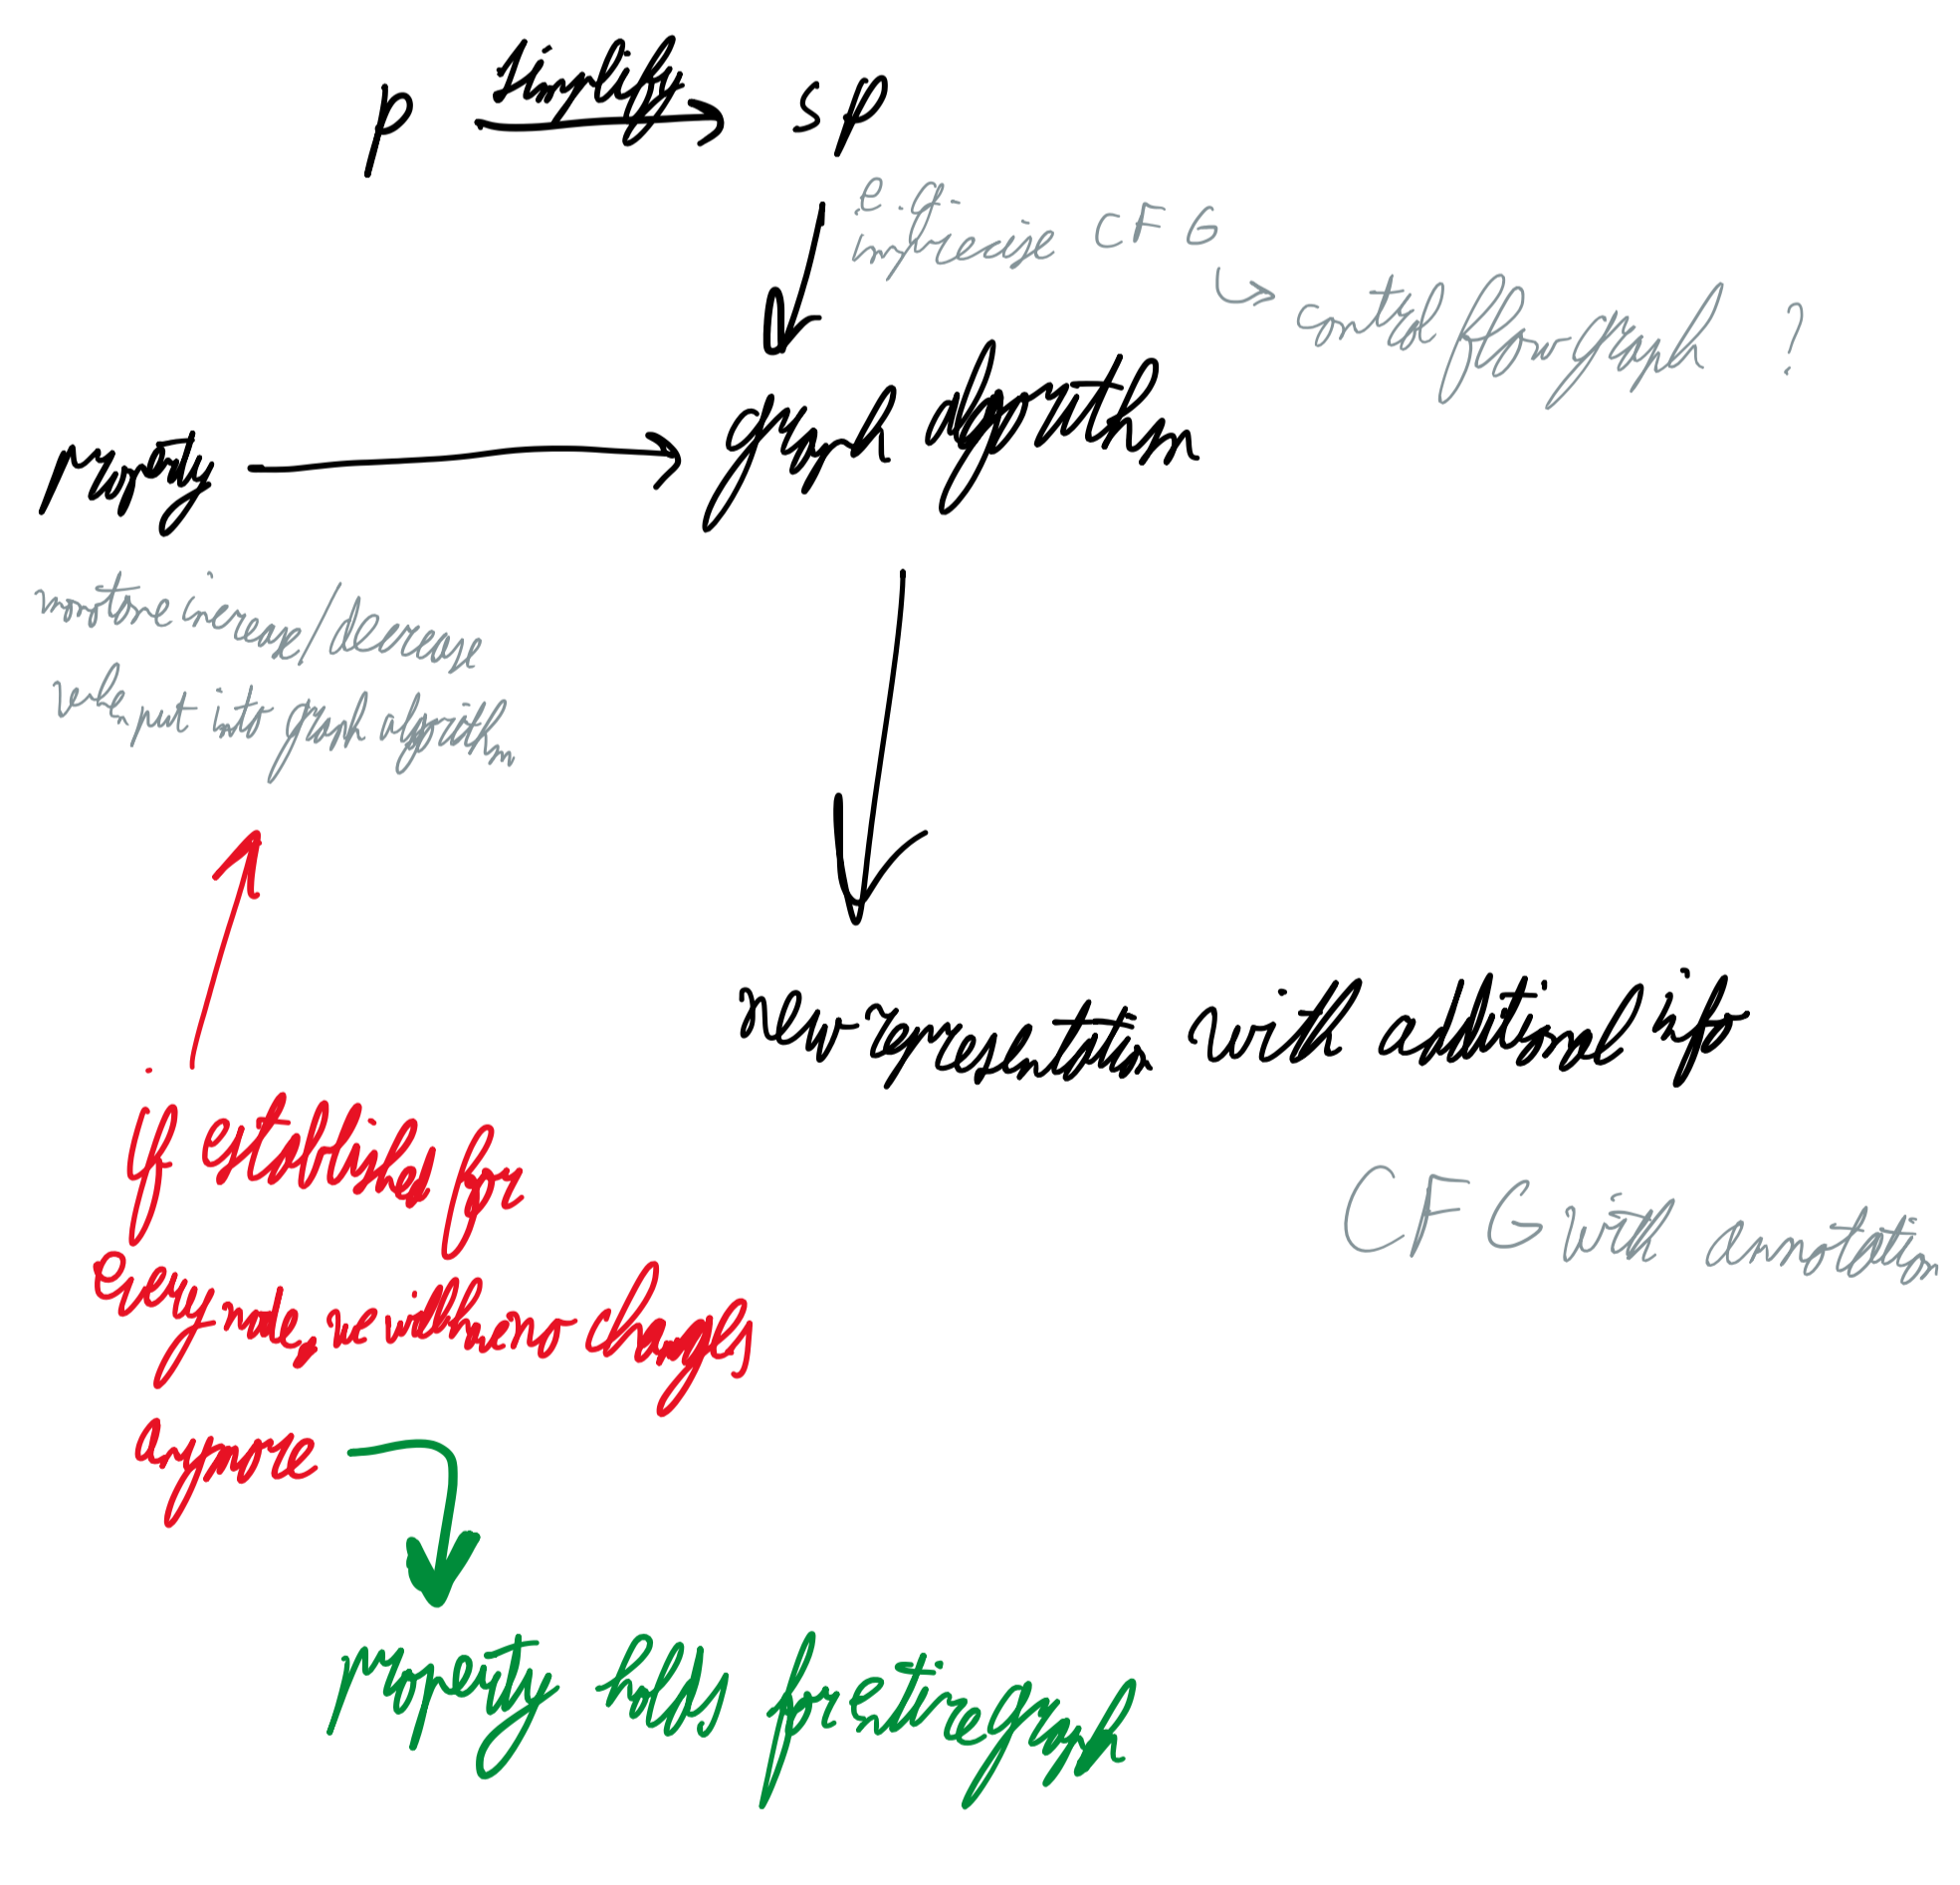 p simplify sp
e.g.
imprecise CFG
control flow graph ?
property graph algorithm
monotone increase/decrease
when put into graph algorithm
new representation with additional info
if established for
every node, ie with no changes
anymore
CFG with annotation
property holds for entire graph